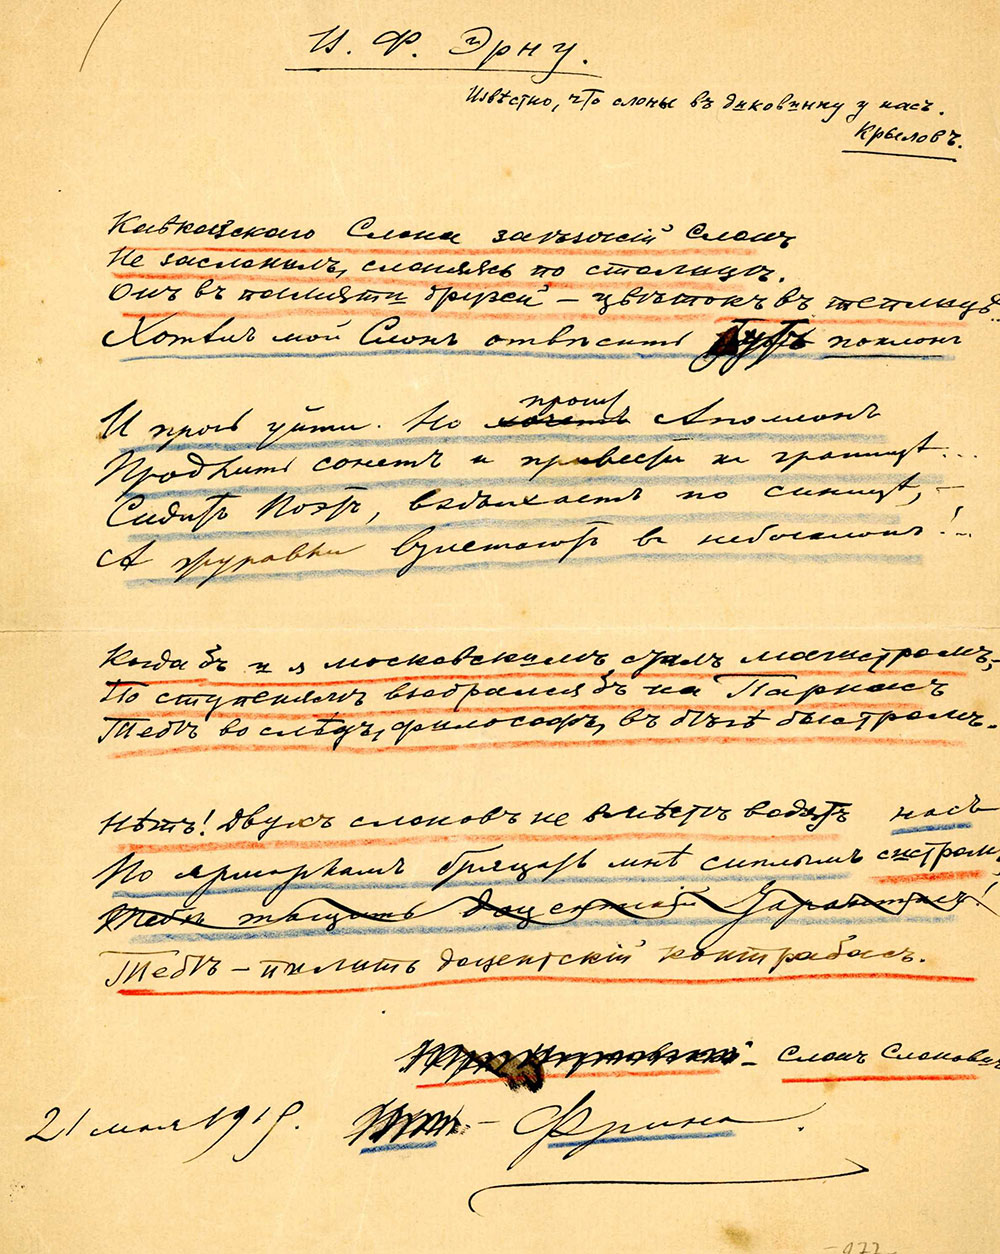 И. Ф. Эрну.
Извѣстно, что слоны въ диковинку у насъ.
Крыловъ.
Кавказского Слона заѣзжій Слонъ
Не заслонилъ, слоняясь по столицѣ.
Онъ въ памяти друзей – цвѣтокъ въ теплицѣ..
Хотѣлъ мой Слонъ отвѣсить тутъ поклонъ
И прочь уйти. Но хочетъ прошу Аполлонъ
Продлить сонетъ и привести къ границѣ...
Сидитъ Поэтъ, вздыхаетъ по синицѣ, –
А журавли взлетаютъ въ небосклонъ!..
Когда бъ и я московскимъ сталъ магистромъ,
По ступенямъ выбрался бъ на Парнасъ
Тебѣ во слѣдъ, философъ, въ бѣгѣ быстромъ.
Нѣтъ! Двухъ слоновъ не вмѣстѣ водятъ насъ
По ярмаркамъ бряцать мнѣ сиплымъ систромъ,
Тебѣ тащить доцентскій
Тебѣ – пилить доцентскій контрабасъ.
– Слонъ Слоновичъ
21 мая 1915. – Фрина.